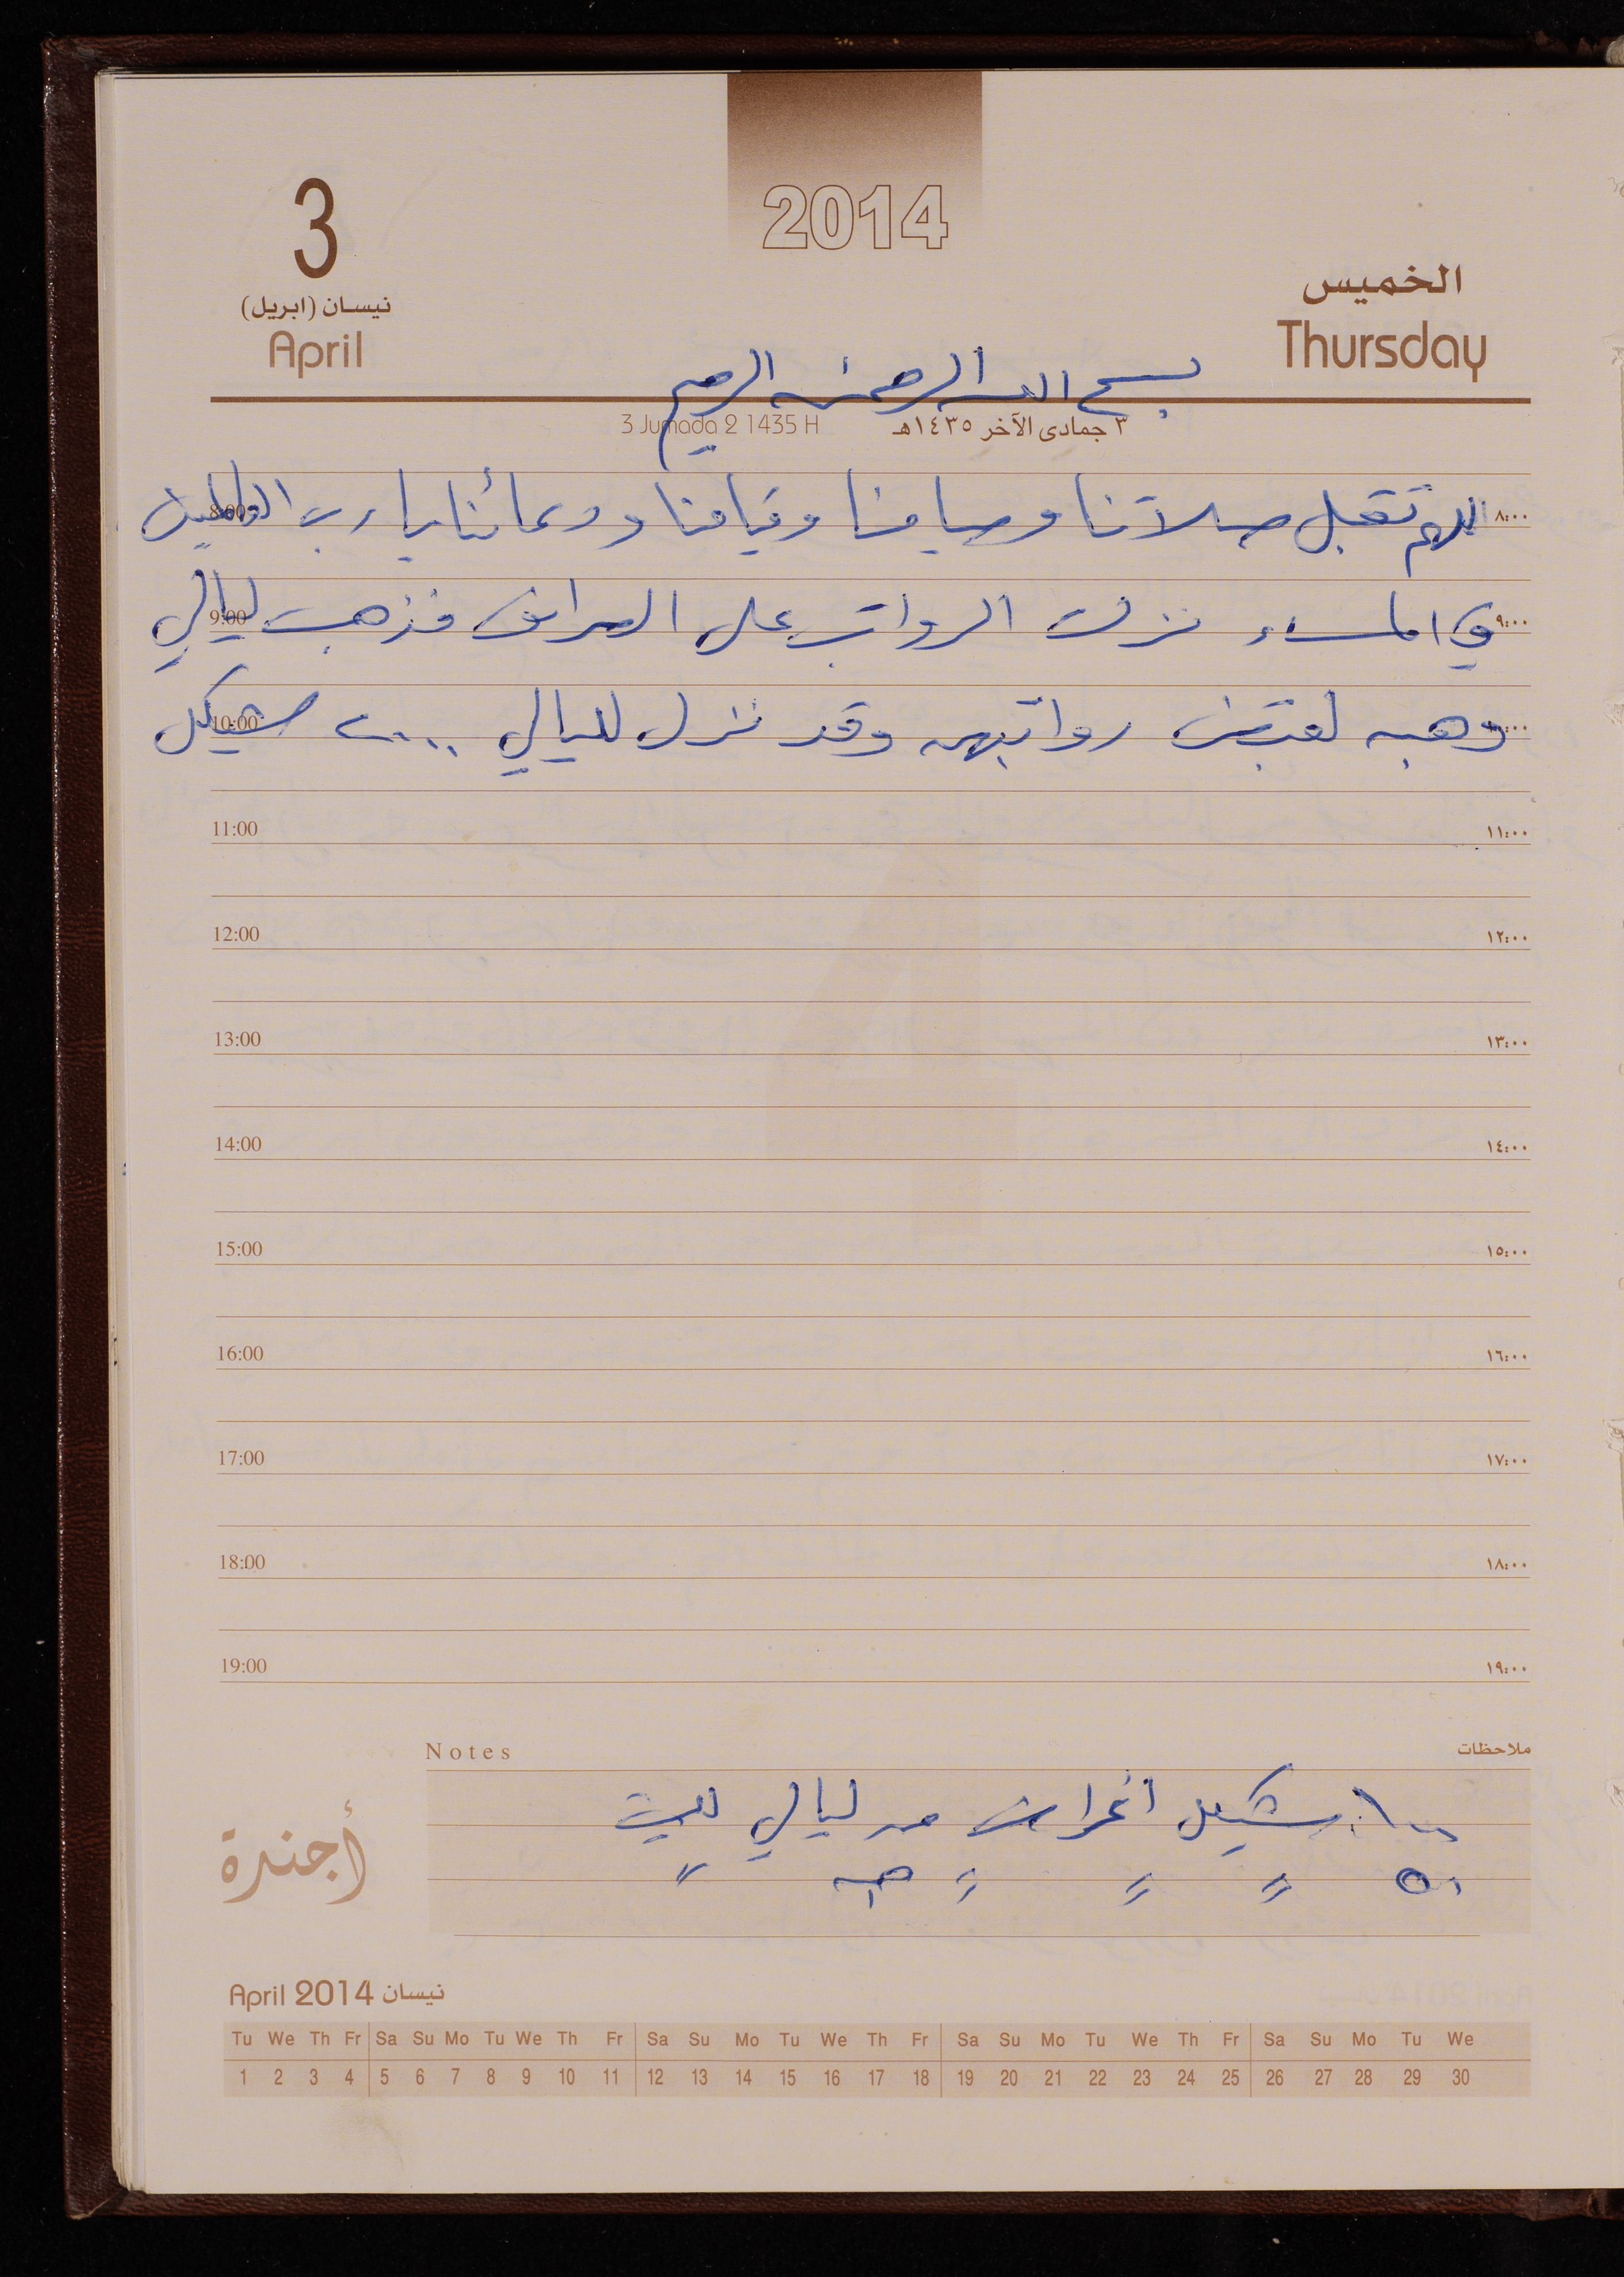 2014
3
نيسان (ابريل)
April
الخميس
Thursday
بسم الله الرحمن الرحيم
3 Jumada 2 1435 H ٣ جمادى الآخر ١٤٣٥هـ
اللهم تقبل صلاتنا وصيامنا وقيامنا ودعائنا يا رب العالمين
8:00 ٨:٠٠
في المساء نزلت الرواتب على الصراف فذهبت ليالي
9:00 ٩:٠٠
وهبه لقبض رواتبهن وقد نزل لليالي ٢٠٠٠ شيكل
10:00
11:00 ١١:٠٠
12:00 ١٢:٠٠
13:00 ١٣:٠٠
14:00 ١٤:٠٠
15:00 ١٥:٠٠
16:00 ١٦:٠٠
17:00 ١٧:٠٠
18:00 ١٨:٠٠
19:00 ١٩:٠٠
Notes ملاحظات
شيكل اغراض من ليالي للبيت
٥٠ " " " هبه "
أجندة
April 2014 نيسان
Tu We Th Fr Sa Su Mo Tu We Th Fr Sa Su Mo Tu We Th Fr Sa Su Mo Tu We Th Fr Sa Su Mo Tu We
1 2 3 4 5 6 7 8 9 10 11 12 13 14 15 16 17 18 19 20 21 22 23 24 25 26 27 28 29 30